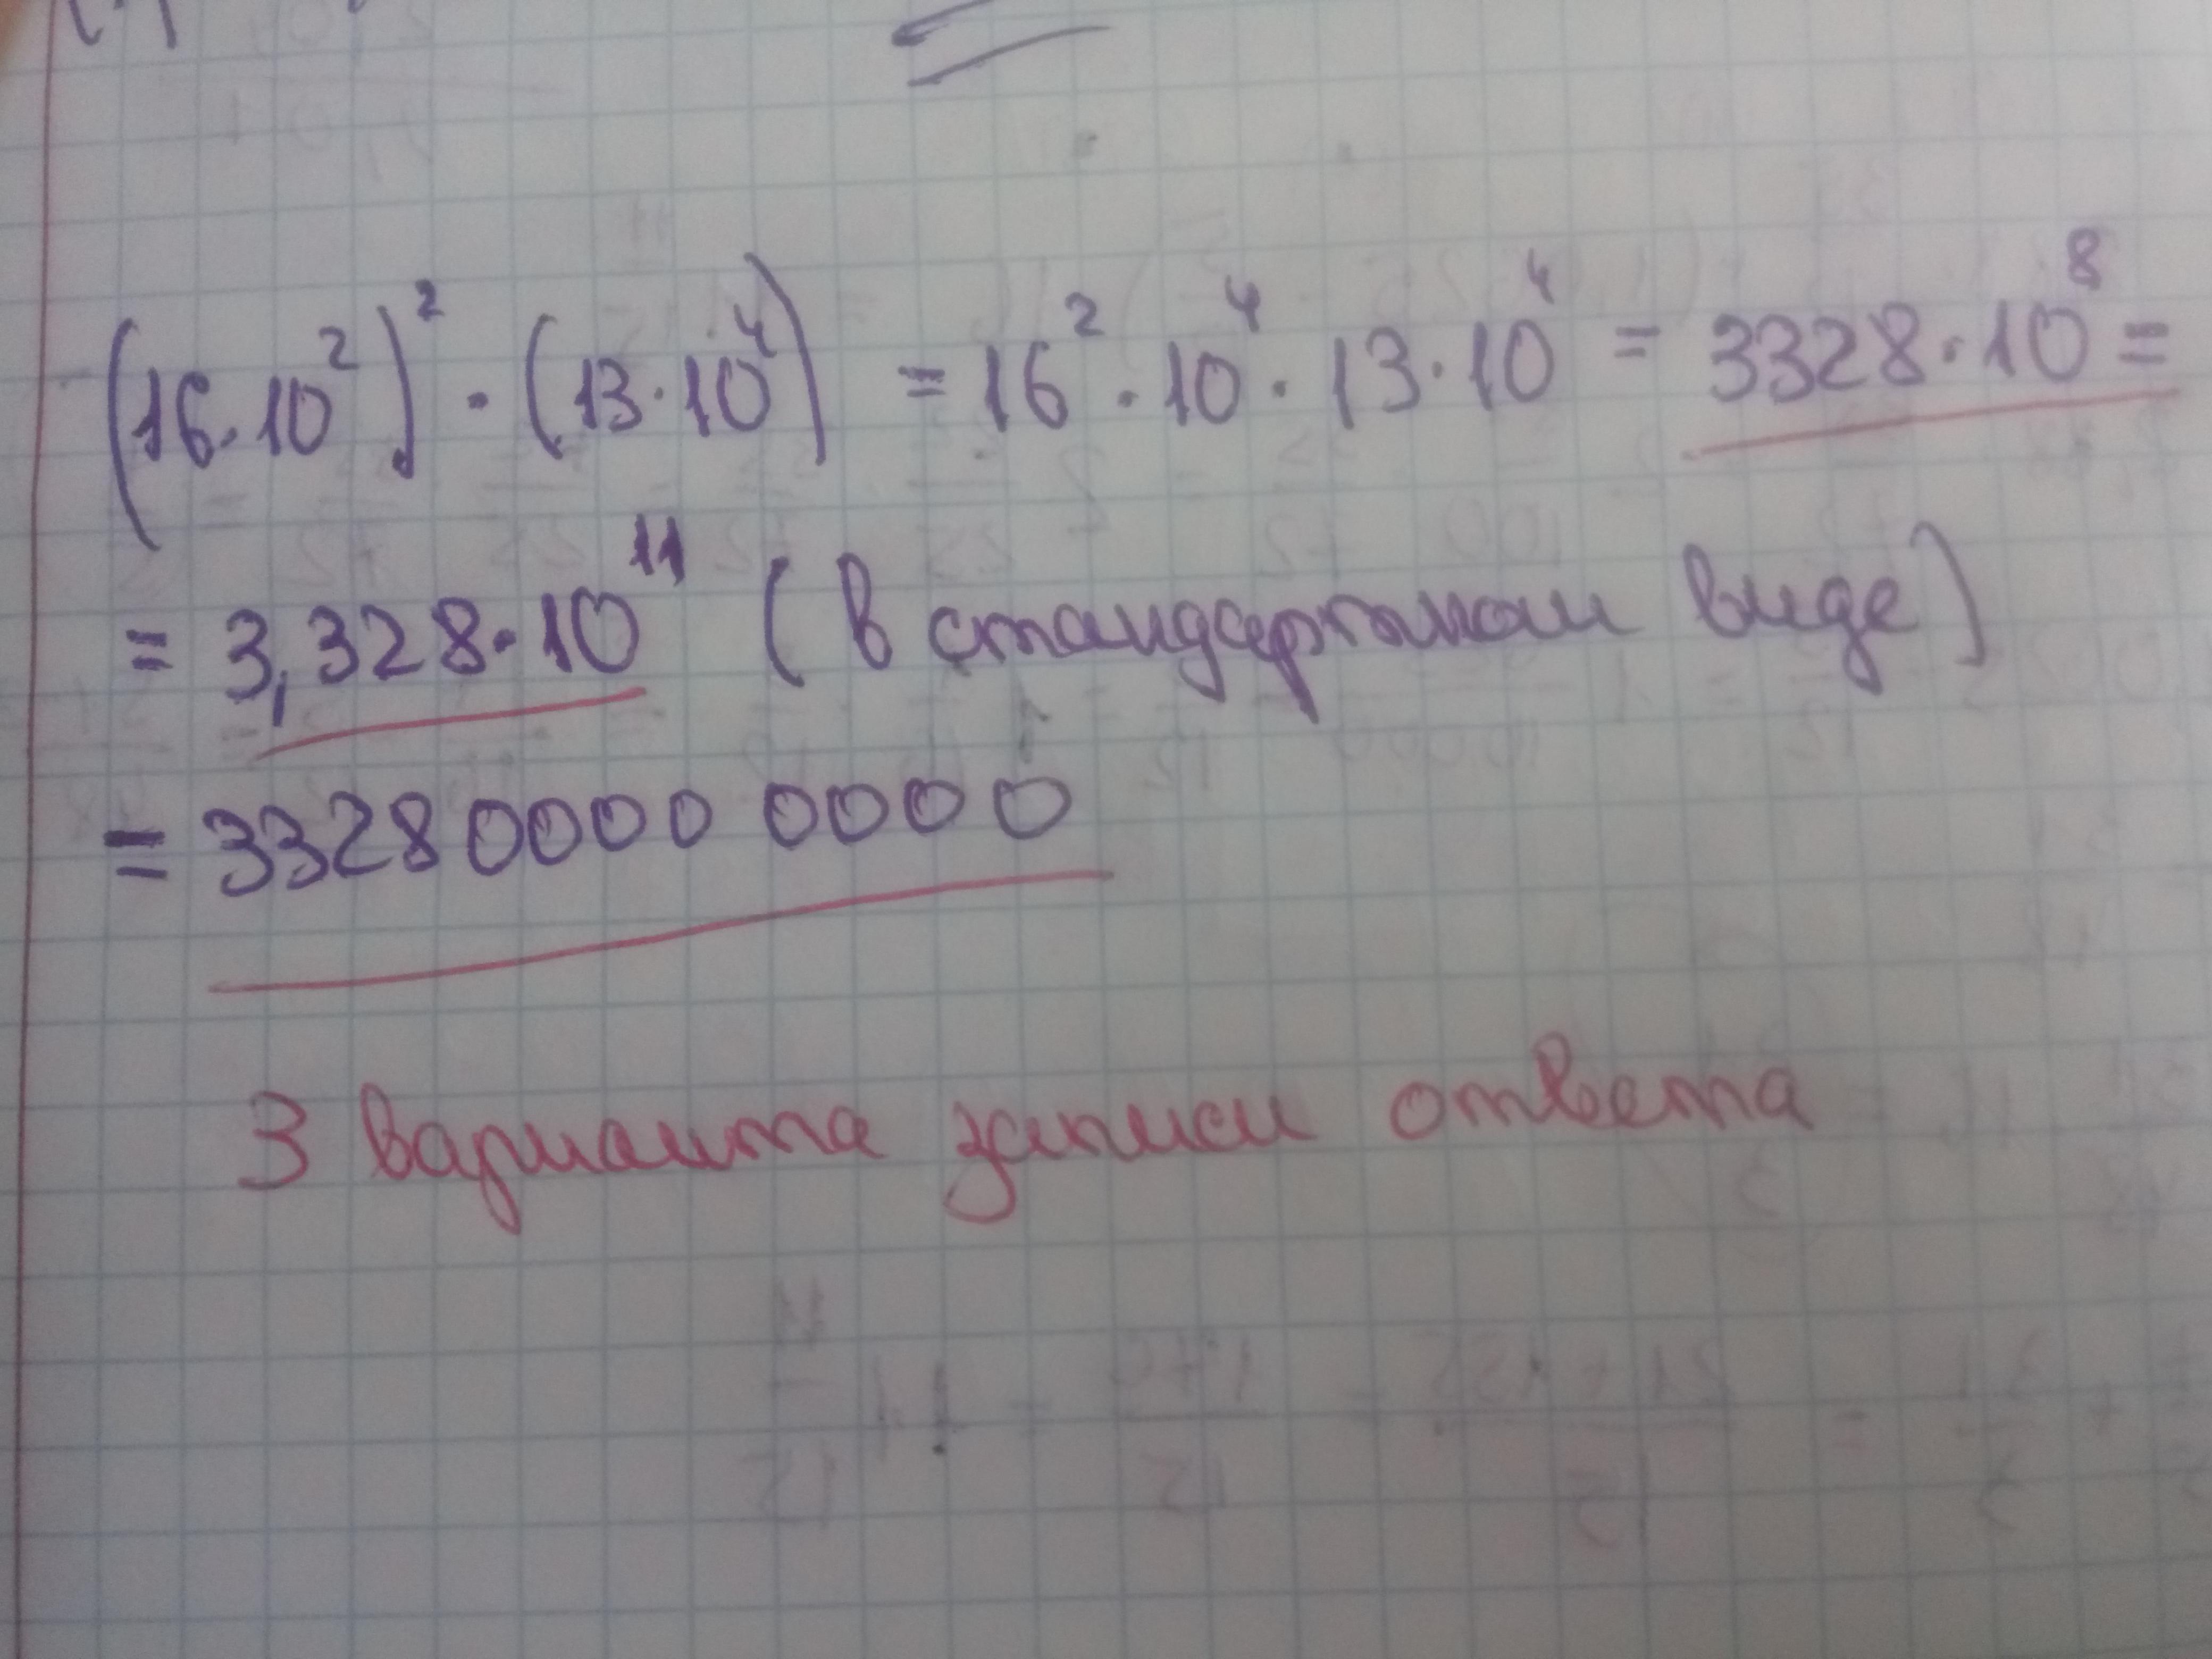 (16·10²)²·(13·10⁴) = 16²·10⁴·13·10⁴ = 3328·10⁸ =
= 3,328·10¹¹ (в стандартном виде)
= 33280000 0000
3 варианта записи ответа